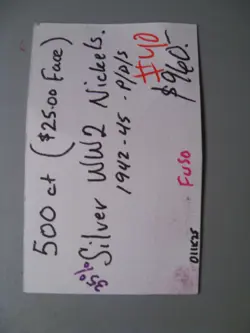 500 ct ($25.00 Face)
35% Silver WW2 Nickels.
1942-45 - P/D/S
#40
$960.-
FUSO